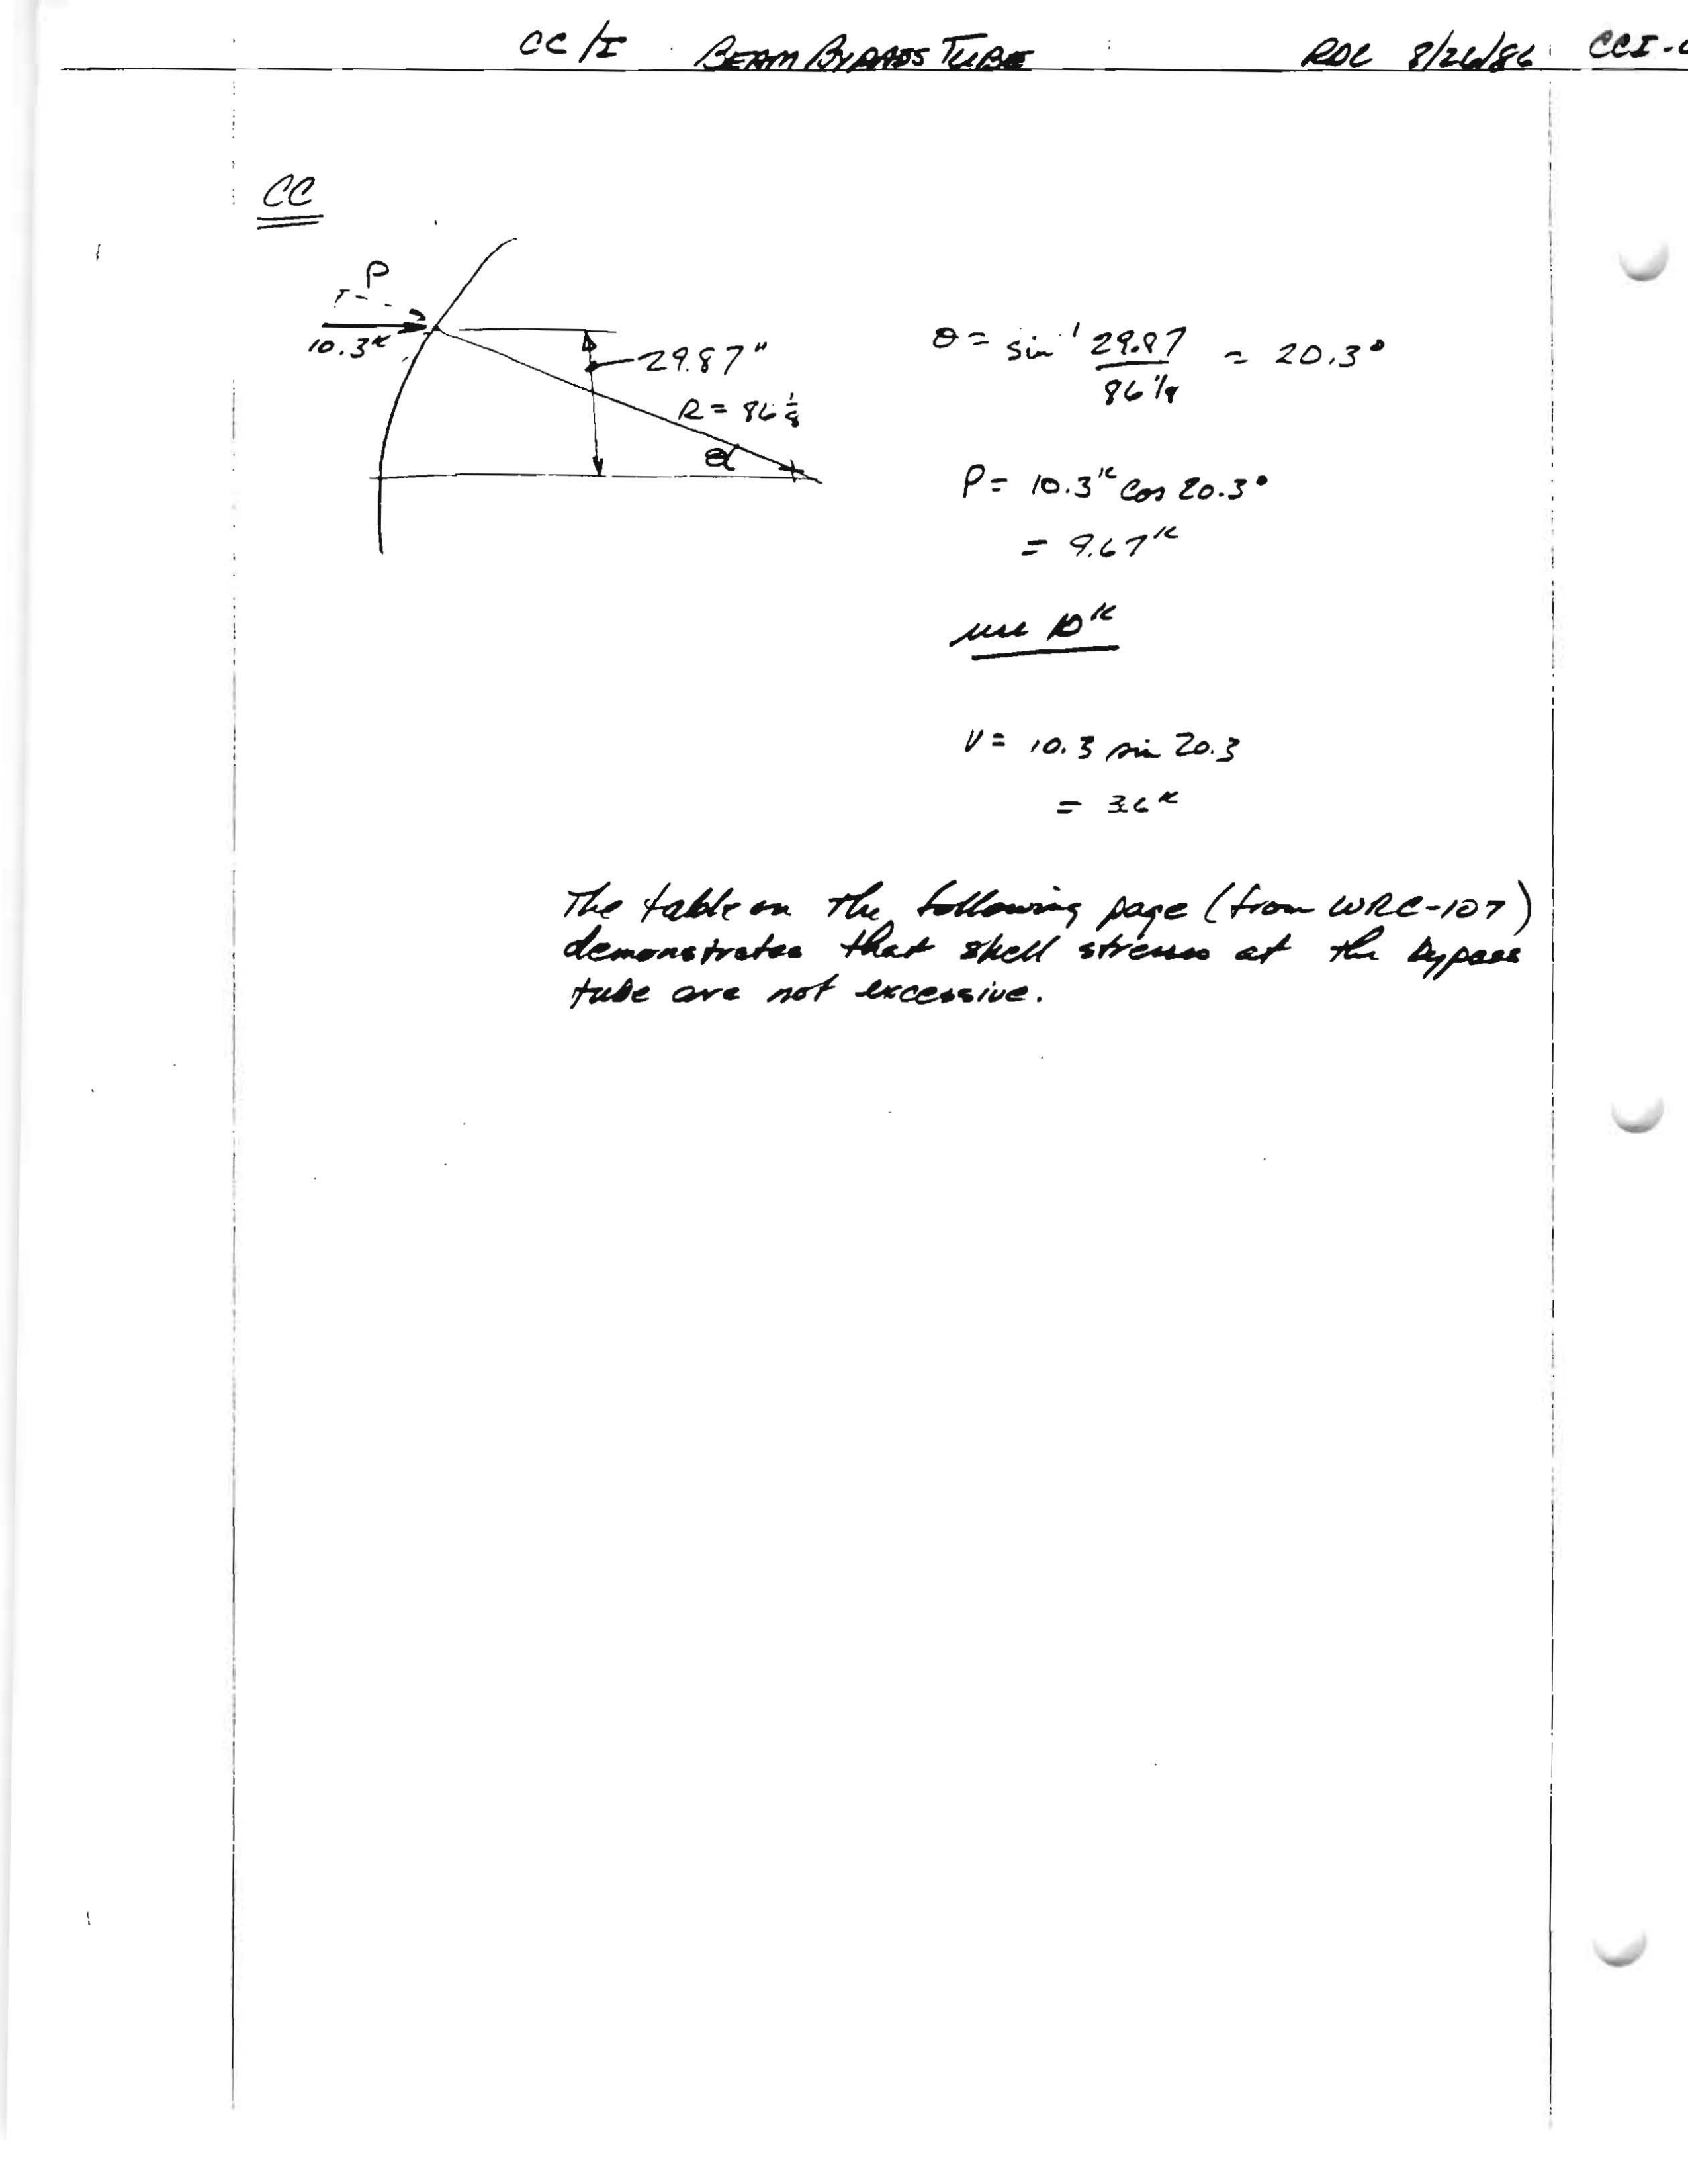 CC/I BEAM BYPASS TUBE RDC 8/26/86 CCI-
CC
P
10.3ᴷ
29.87"
R = 86 1/8
θ
θ = sin⁻¹ 29.87 / 86 1/8 = 20.3°
P = 10.3ᴷ cos 20.3°
= 9.67ᴷ
use 10ᴷ
V = 10.3 sin 20.3
= 3.6ᴷ
The table on the following page (from WRC-107)
demonstrates that shell stresses at the bypass
tube are not excessive.